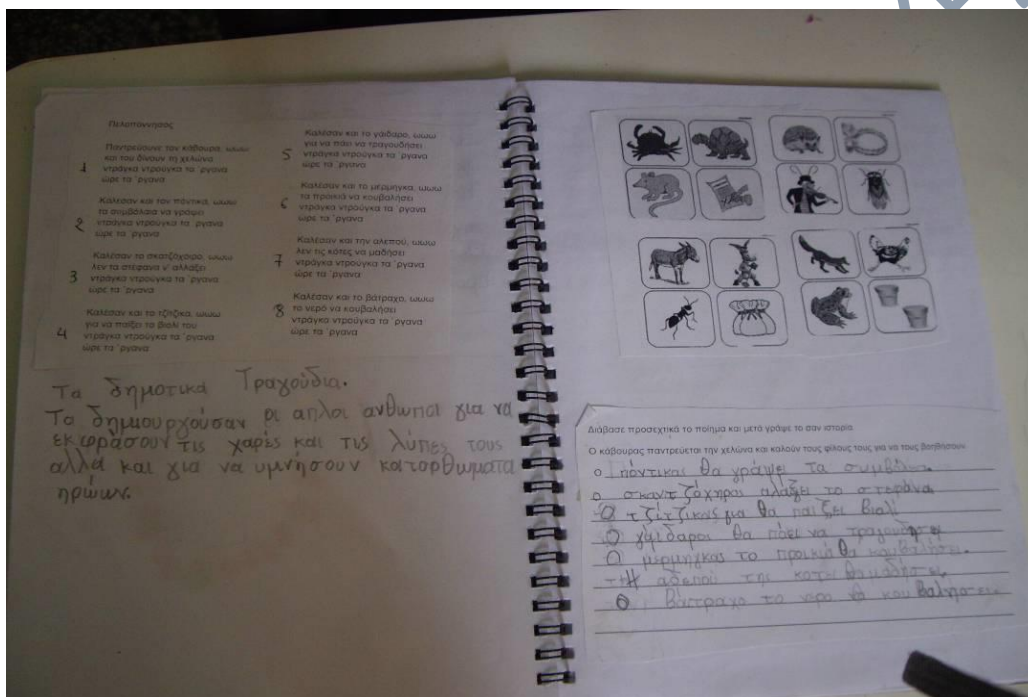 Πελοπόννησος
1 Παντρεύουνε τον κάβουρα, ωωω
και του δίνουν τη χελώνα
ντράγκα ντρούγκα τα ΄ργανα
ώρε τα ΄ργανα
2 Καλέσαν και τον πόντικα, ωωω
τα συμβόλαια να γράψει
ντράγκα ντρούγκα τα ΄ργανα
ώρε τα ΄ργανα
3 Καλέσαν το σκατζόχοιρο, ωωω
λεν τα στέφανα ν' αλλάξει
ντράγκα ντρούγκα τα ΄ργανα
ώρε τα ΄ργανα
4 Καλέσαν και το τζίτζικα, ωωω
για να παίξει το βιολί του
ντράγκα ντρούγκα τα ΄ργανα
ώρε τα ΄ργανα
5 Καλέσαν και το γάιδαρο, ωωω
για να πάει να τραγουδήσει
ντράγκα ντρούγκα τα ΄ργανα
ώρε τα ΄ργανα
6 Καλέσαν και το μέρμηγκα, ωωω
τα προικιά να κουβαλήσει
ντράγκα ντρούγκα τα ΄ργανα
ώρε τα ΄ργανα
7 Καλέσαν και την αλεπού, ωωω
λεν τις κότες να μαδήσει
ντράγκα ντρούγκα τα ΄ργανα
ώρε τα ΄ργανα
8 Καλέσαν και το βάτραχο, ωωω
το νερό να κουβαλήσει
ντράγκα ντρούγκα τα ΄ργανα
ώρε τα ΄ργανα
Τα δημοτικά Τραγούδια.
Το δημιουργούσαν οι απλοι ανθωποι για να
εκφράσουν τις χαρές και τις λύπες τους
αλλά και για να υμνήσουν κατορθωματα
ηρώων.
Διάβασε προσεχτικά το ποίημα και μετά γράψε το σαν ιστορία
Ο κάβουρας παντρεύεται την χελώνα και καλούν τους φίλους τους για να τους βοηθήσουν
ο πόντικας θα γράψει τα
ο αλάξει το στέφανα
Ο τζίτζικας για θα παίξει βιολί
Ο γαιδαρος θα πάει να
Ο μερμηγκας το προικιά θα κουβαλήσει.
της
Ο βάτραχο το νερο θα